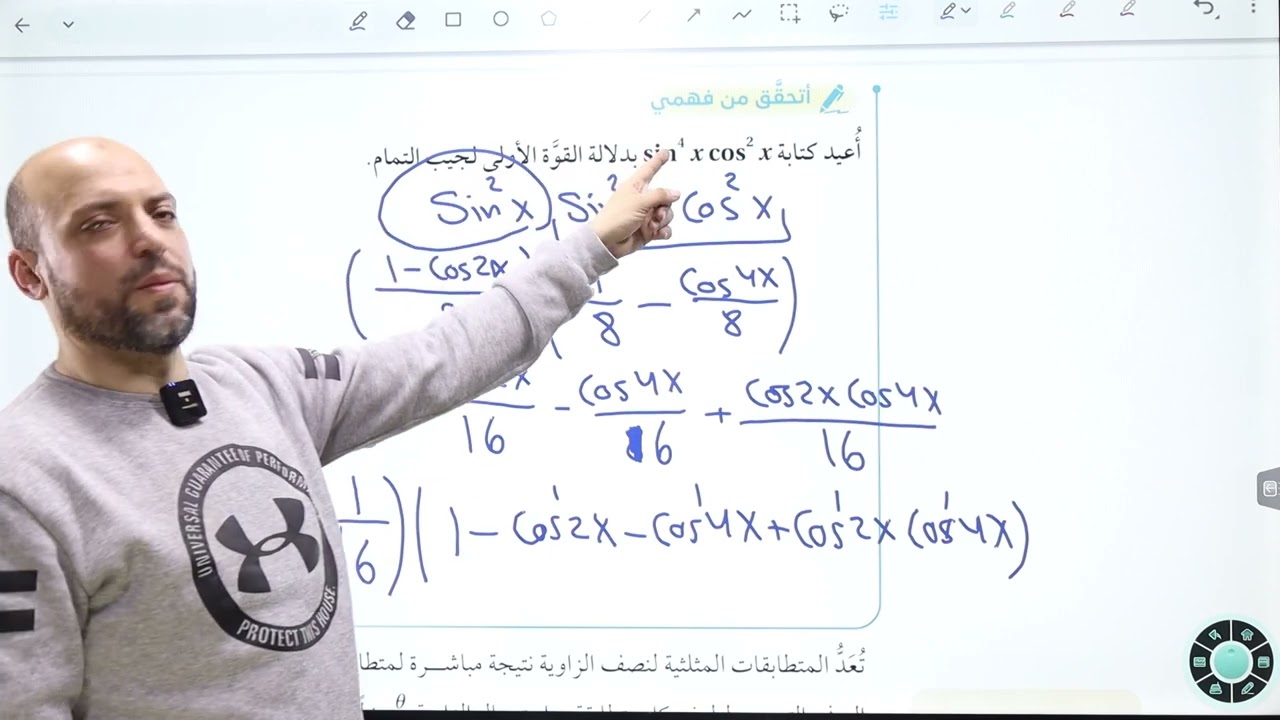 أتحقَّق من فهمي
أُعيد كتابة sin⁴ x cos² x بدلالة القوَّة الأولى لجيب التمام.
Sin² x, Cos² x
(1 - Cos2x) 8 - Cos4x/8)
16 - Cos4x/16 + Cos2x Cos4x/16
1/6)(1 - Cos¹2x - Cos¹4x + Cos¹2x Cos¹4x)
تُعَدُّ المتطابقات المثلثية لنصف الزاوية نتيجة مباشــرة
UNIVERSAL GUARANTEE OF PERFORM
PROTECT THIS HOUSE.